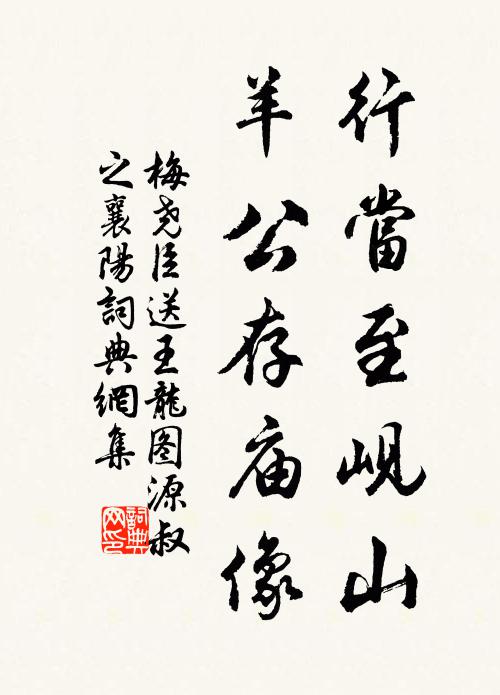 行當至峴山
羊公存庙像
梅尧臣送王龍图源叔
之襄陽詞典網集
詞典网印